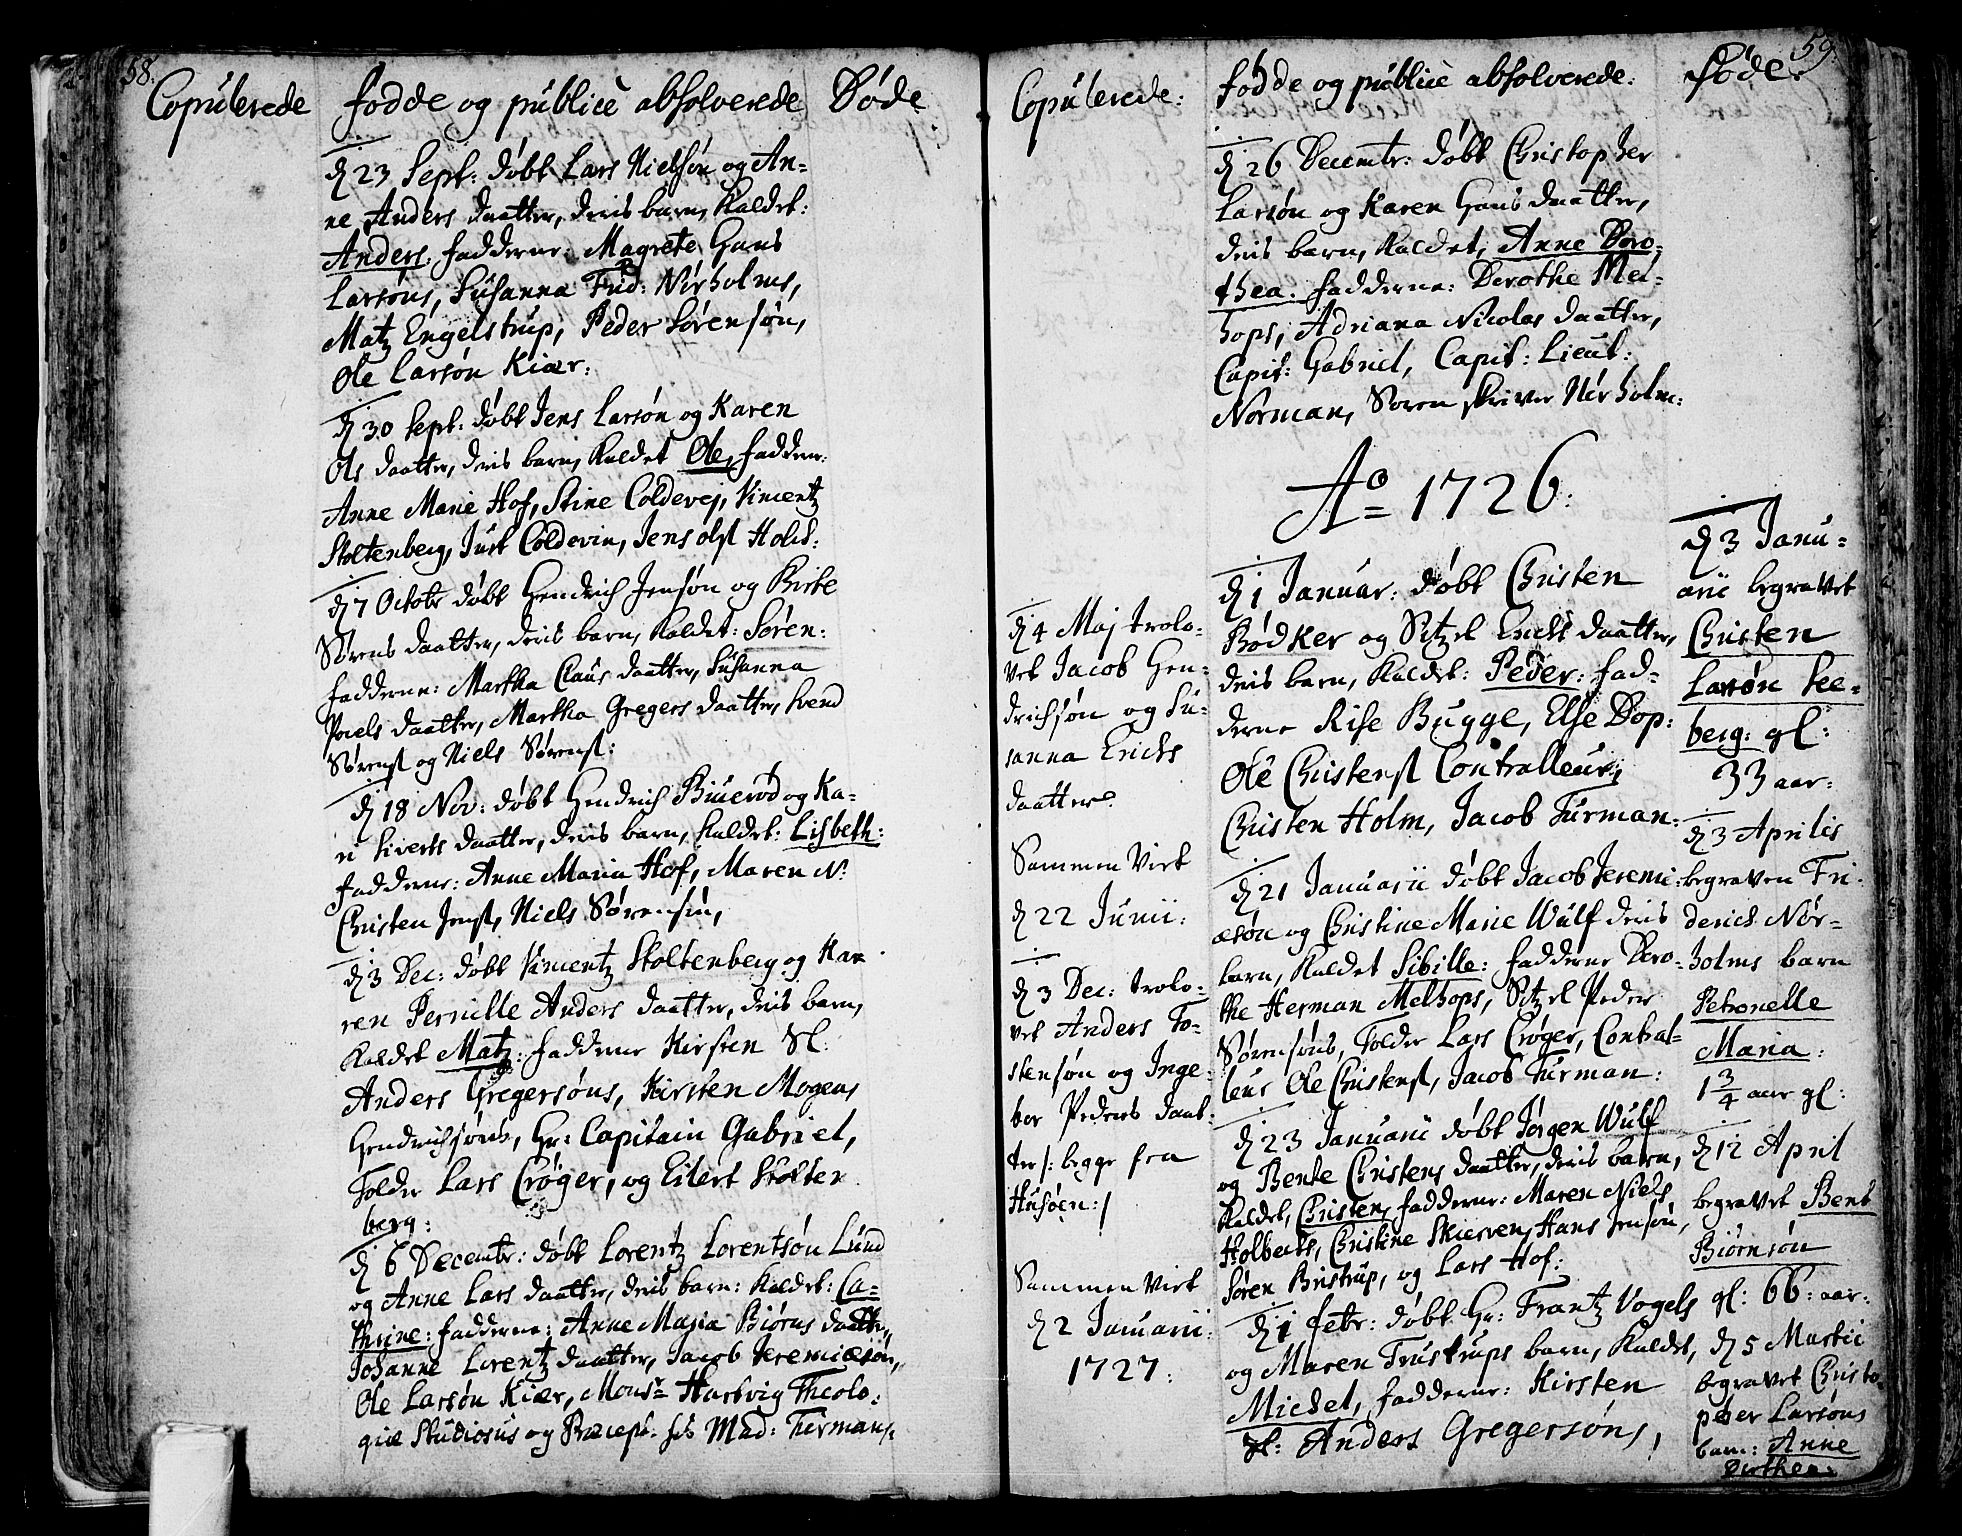 58.
Copulerede
fødde og publicè absolverede
Døde
d 23 Sept: døbt Lars Nielsøn og An-
ne Anders daatter, deris barn, kaldet:
Anders. fadderne: Magrete Hans
Larsøns, Susanna Frid: Nørholms,
Matz Engelstrup, Peder Sørensøn,
Ole Larsøn Kiær:
d 30 Sept: døbt Jens Larsøn og Karen
Ols daatter, deris barn, kaldet Ole, fadder:
Anne Marie Hof, Stine Coldevej, Vincentz
Stoltenberg, Just Coldevin, Jens Olss Holst:
d 7 Octobr døbt Hendrich Jensøn og Birte
Sørens daatter, deris barn, kaldet: Søren:
fadderne: Martha Claus daatter, Susanna
Poels daatter, Martha Gregers daatter, Svend
Sørenss og Niels Sørenss:
d 18 Nov: døbt Hendrich Biuerød og Ka-
ri Siverts daatter, deris barn, kaldet: Lisbeth:
fadderne: Anne Maria Hof, Maren N:
Christen Jenss, Niels Sørensøn,
d 3 Dec: døbt Vincentz Stoltenberg og Kar
ren Pernille Anders daatter, deris barn,
kaldet Matz: fadderne Kirsten Sl.
Anders Gregersøns, Kirsten Mogens
Hendrichsøns, Hr: Capitain Gabriel,
Tolder Lars Crøger, og Eilert Stolten
berg:
d 6 Decembr: døbt Lorentz Lorentsøn Lund
og Anne Lars daatter, deris barn: kaldet: Ca-
thrine: fadderne: Anne Maria Biørns daatter,
Johanne Lorentz daatter, Jacob Jeremiæsøn,
Ole Larsøn Kiær, Monsr Hartvig Theolo:
giæ Studiosus og Præcept: hos Mad: Tuermans,
59.
Copulerede:
fødde og publicè absolverede:
Døde:
d 4 Maj trolo-
vet Jacob Hen-
drichsøn og Su-
sanna Erichs
daatter.
Sammen Viet
d 22 Junii:
d 3 Dec: trolo-
vet Anders To-
stensøn og Inge-
bor Peders daat-
ter /: begge fra
Husøen:/
Sammen Viet
d 2 Januarii:
1727:
d 26 Decembr: døbt Christopher
Larsøn og Karen Hans daatter,
deris barn, kaldet, Anne Doro-
thea. fadderne: Dorothe Mel-
hops, Adriana Nicolas daatter,
Capit: Gabriel, Capit: Lieut:
Norman, Soren skriver Nørholm:
Ao 1726:
d 1 Januar: døbt Christen
Bødker og Sitzel Erichs daatter,
deris barn, kaldet: Peder: fad-
derne Rise Bugge, Else Dop:
Ole Christenss Controlleur,
Christen Holm, Jacob Turman:
d 21 Januarii døbt Jacob Jeremi-
æsøn og Christine Marie Wulf deris
barn, kaldet Sibille: fadderne Doro-
the Herman Melhops, Sitzel Peder
Sørensøns, Tolder Lars Crøger, Contral-
leur Ole Christenss, Jacob Turman:
d 23 Januarii døbt Jørgen Wulf
og Bente Christens daatter, deris barn,
kaldet, Christen, fadderne: Maren Niels
Holberts, Christine Skierven, Hans Jensøn,
Søren Bristrup, og Lars Hof:
d 1 febr: døbt Hr: Frantz Vogels
og Maren Trustrups barn, kaldet,
Michel, fadderne: Kirsten
Sl: Anders Gregersøns,
d 3 Janu-
arii begravet
Christen
Larsøn See-
berg: gl:
33 aar:
d 3 Aprilis
begraven Fri-
derich Nør-
holms barn
Petronelle
Maria:
1 3/4 aar gl:
d 12 April
begravet Bent
Biørnsøn
gl: 66: aar:
d 5 Martii
begravet Christo-
pher Larsøns
barn: Anne
Dorthea: